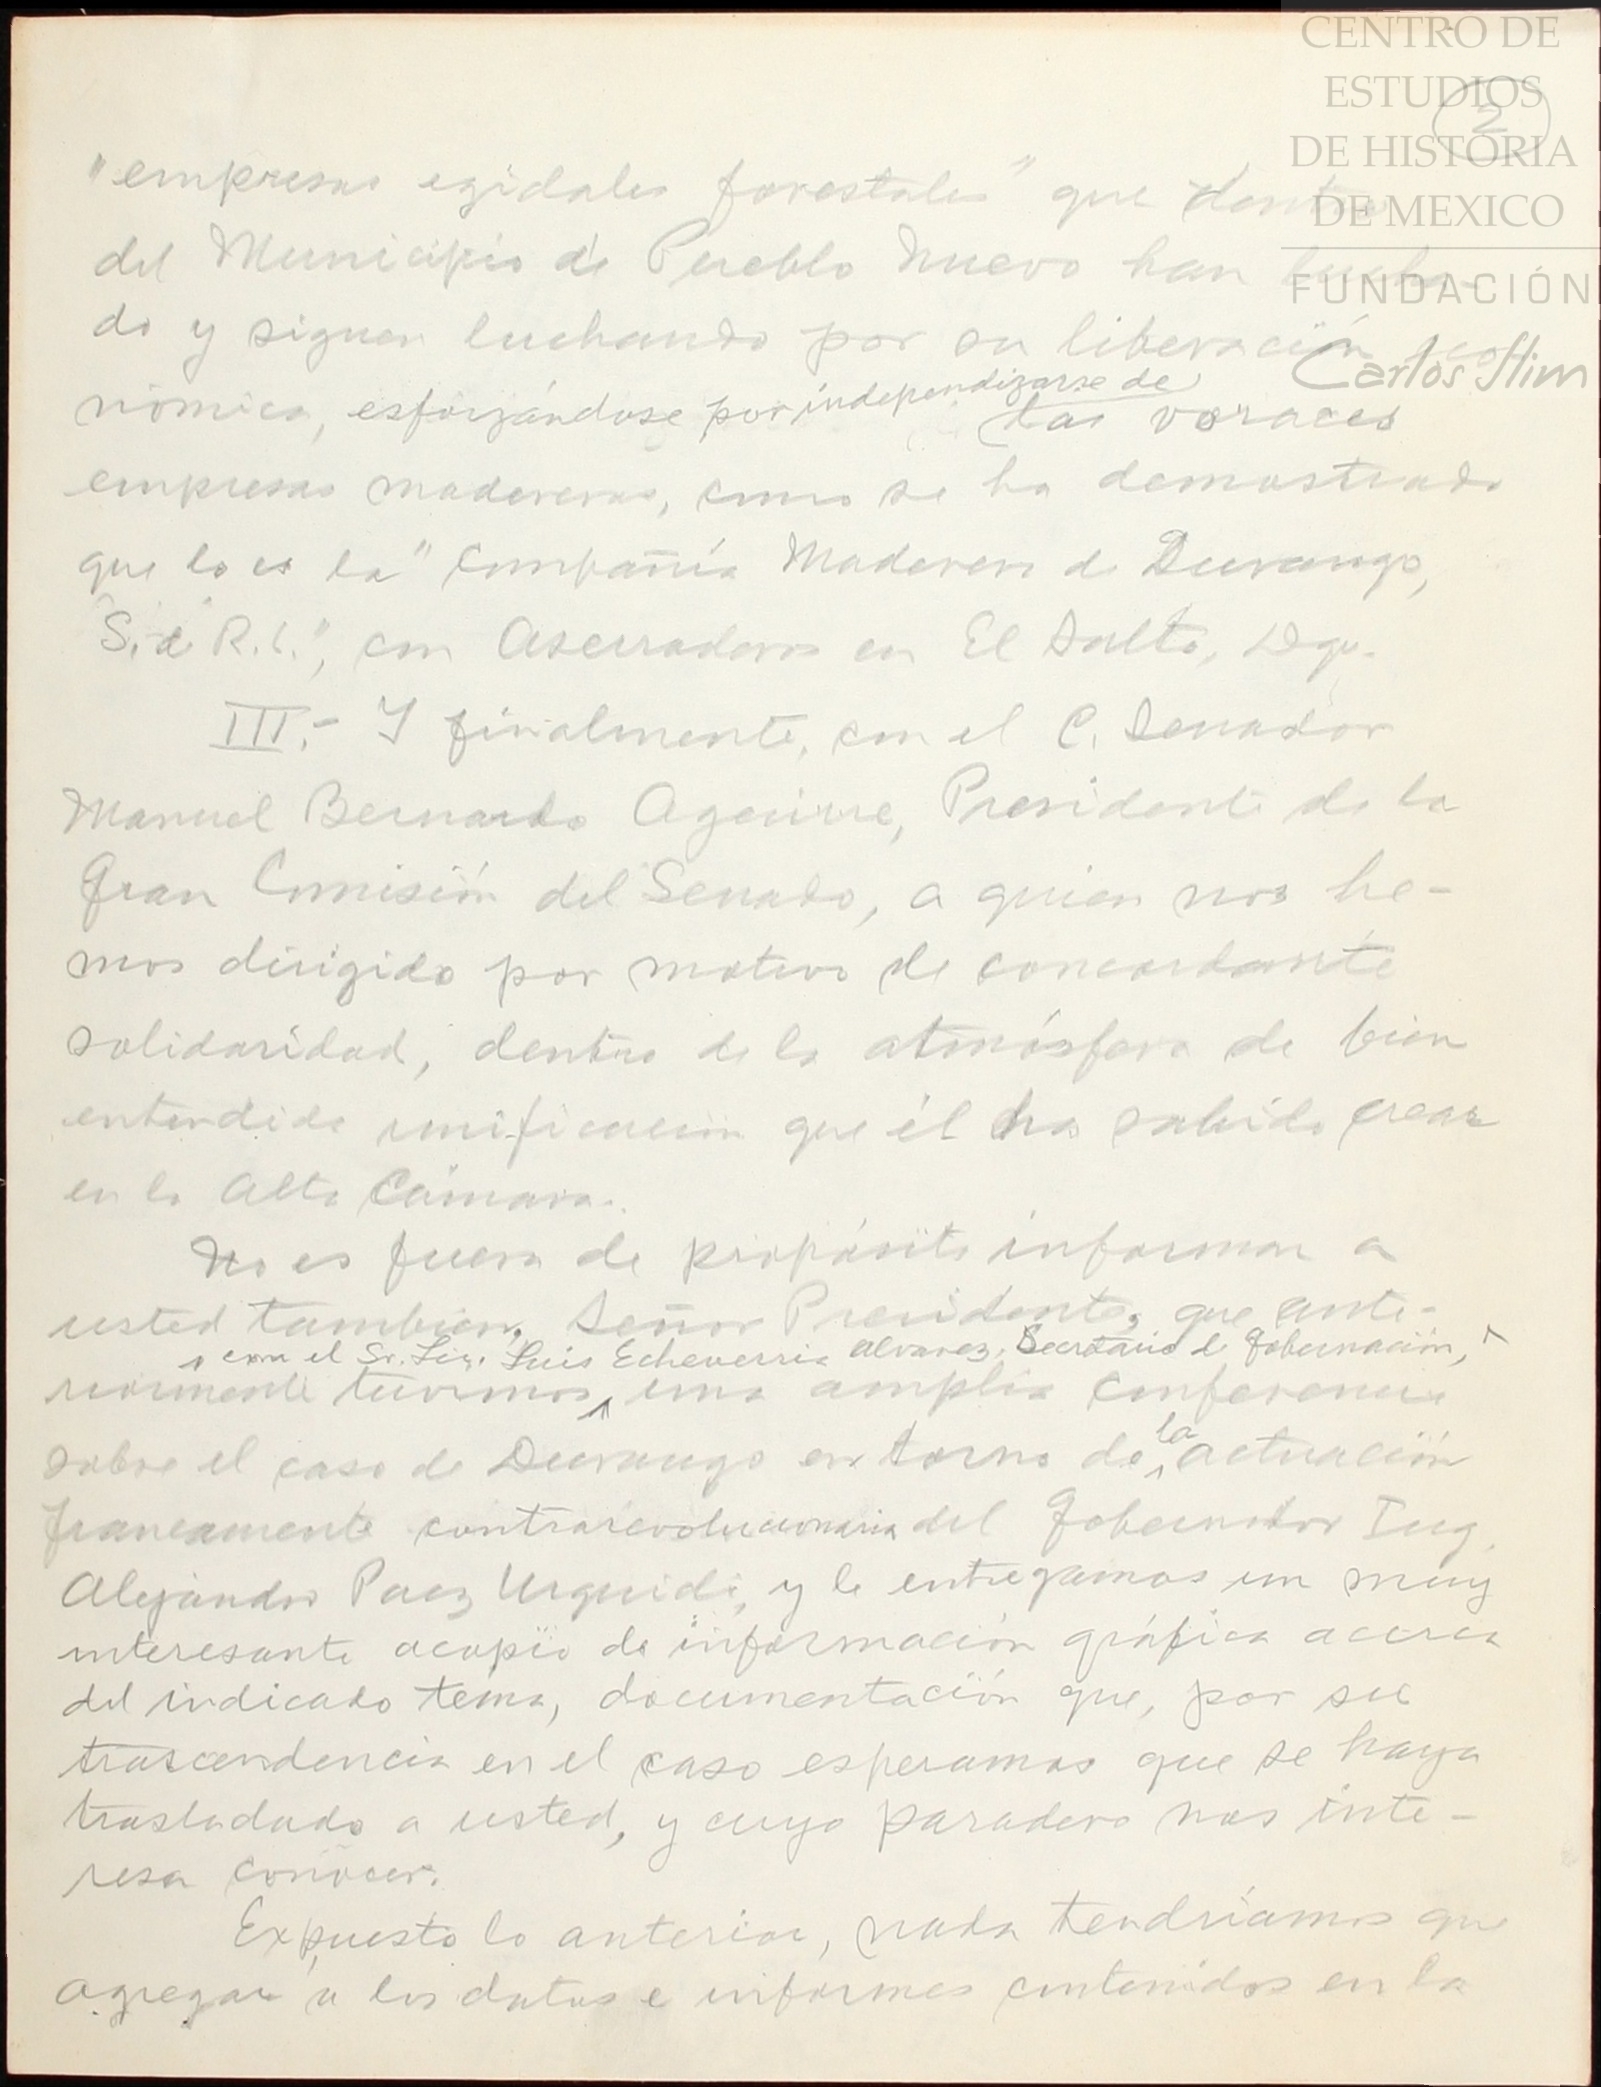 CENTRO DE
ESTUDIOS
DE HISTORIA
DE MEXICO
FUNDACIÓN
Carlos Slim
2
"empresas egidales forestales" que dentro
del Municipio de Pueblo Nuevo han lucha-
do y siguen luchando por su liberación eco-
nómica, esforzándose por independizarse de las voraces
empresas madereras, como se ha demostrado
que lo es la "Compañía Maderera de Durango,
S. de R.L.", con Aserraderos en El Salto, Dgo.
III.- Y finalmente, con el C. Senador
Manuel Bernardo Aguirre, Presidente de la
Gran Comisión del Senado, a quien nos he-
mos dirigido por motivo de concordante
solidaridad, dentro de la atmósfera de bien
entendida unificación que él ha sabido crear
en la Alta Cámara.
No es fuera de propósito informar a
usted también, Señor Presidente, que ante-
con el Sr. Lic. Luis Echeverria Alvarez, Secretario de Gobernación,
riormente tuvimos una amplia conferencia
sobre el caso de Durango en torno de la actuación
francamente contrarevolucionaria del Gobernador Ing.
Alejandro Paez Urquidi, y le entregamos un muy
interesante acopio de información gráfica acerca
del indicado tema, documentación que, por su
trascendencia en el caso esperamos que se haya
trasladado a usted, y cuyo paradero nos inte-
resa conocer.
Expuesto lo anterior, nada tendríamos que
agregar a los datos e informes contenidos en la